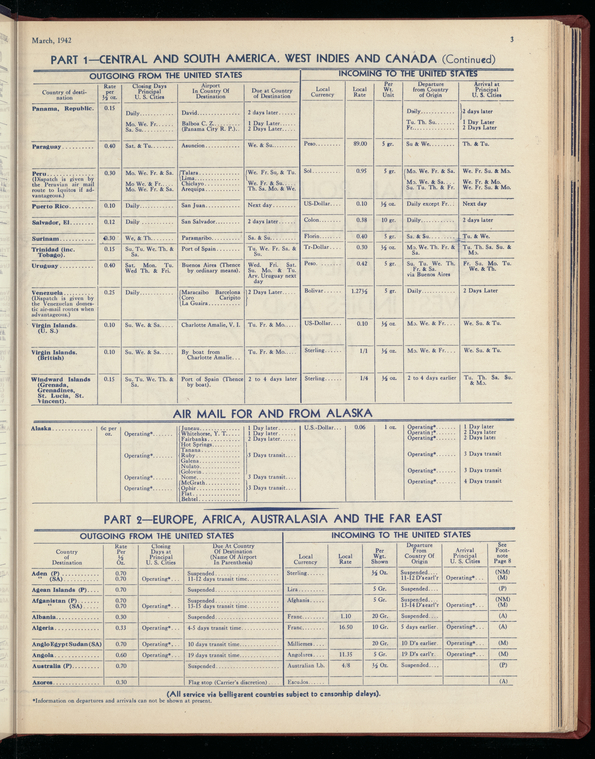 March, 1942 3
PART 1—CENTRAL AND SOUTH AMERICA. WEST INDIES AND CANADA (Continued)
OUTGOING FROM THE UNITED STATES INCOMING TO THE UNITED STATES
Country of desti- nation Rate per ½ oz. Closing Days Principal U. S. Cities Airport In Country Of Destination Due at Country of Destination Local Currency Local Rate Per Wt. Unit Departure from Country of Origin Arrival at Principal U. S. Cities
Panama, Republic. 0.15 Daily David 2 days later Daily 2 days later
Mo. We. Fr. Balboa C. Z. 1 Day Later Tu. Th. Su. 1 Day Later
Sa. Su. (Panama City R. P.) 2 Days Later Fr. 2 Days Later
Paraguay 0.40 Sat. & Tu. Asuncion We. & Su. Peso 89.00 5 gr. Su & We. Th. & Tu.
Peru 0.30 Mo. We. Fr. & Sa. Talara We. Fr. Su. & Tu. Sol 0.95 5 gr. Mo. We. Fr. & Sa. We. Fr. Su. & Mo.
(Dispatch is given by Lima
the Peruvian air mail Mo. We & Fr. Chiclayo We. Fr. & Su. Mo. We. & Sa. We. Fr. & Mo.
route to Iquitos if ad- Mo. We. Fr. & Sa. Arequipa Th. Sa. Mo. & We. Su. Tu. Th. & Fr. We. Fr. Su. & Mo.
vantageous.)
Puerto Rico 0.10 Daily San Juan Next day US-Dollar 0.10 ½ oz. Daily except Fr. Next day
Salvador, El 0.12 Daily San Salvador 2 days later Colon 0.38 10 gr. Daily 2 days later
Surinam 0.30 We. & Th. Paramaribo Sa. & Su. Florin 0.40 5 gr. Sa. & Su. Tu. & We.
Trinidad (inc. Tobago). 0.15 Su. Tu. We. Th. & Sa. Port of Spain Tu. We. Fr. Sa. & Su. Tr-Dollar 0.30 ½ oz. Mo. We. Th. Fr. & Sa. Tu. Th. Sa. Su. & Mo.
Uruguay 0.40 Sat. Mon. Tu. Wed Th. & Fri. Buenos Aires (Thence by ordinary means). Wed. Fri. Sat. Su. Mo. & Tu. Arv. Uruguay next day Peso 0.42 5 gr. Su. Tu. We. Th. Fr. & Sa. via Buenos Aires Fr. Su. Mo. Tu. We. & Th.
Venezuela 0.25 Daily Maracaibo Barcelona 2 Days Later Bolivar 1.275 5 gr. Daily 2 Days Later
(Dispatch is given by Coro Caripito
the Venezuelan domes- La Guaira
tic air-mail routes when
advantageous.)
Virgin Islands. (U. S.) 0.10 Su. We. & Sa. Charlotte Amalie, V. I. Tu. Fr. & Mo. US-Dollar 0.10 ½ oz. Mo. We. & Fr. We. Su. & Tu.
Virgin Islands. (British) 0.10 Su. We. & Sa. By boat from Charlotte Amalie Tu. Fr. & Mo. Sterling 1/1 ½ oz. Mo. We. & Fr. We. Su. & Tu.
Windward Islands (Grenada, Grenadines, St. Lucia, St. Vincent). 0.15 Su. Tu. We. Th. & Sa. Port of Spain (Thence by boat). 2 to 4 days later Sterling 1/4 ½ oz. 2 to 4 days earlier Tu. Th. Sa. Su. & Mo.
AIR MAIL FOR AND FROM ALASKA
Alaska 6c per oz. Operating* Juneau 1 Day later U.S.-Dollar 0.06 1 oz. Operating* 1 Day later
Whitehorse, Y. T. 1 Day later Operating* 2 Days later
Fairbanks 2 Days later Operating* 2 Days later
Hot Springs
Tanana
Operating* Ruby 3 Days transit Operating* 3 Days transit
Galena
Nulato
Golovin Operating* 3 Days transit
Operating* Nome 3 Days transit
McGrath Operating* 4 Days transit
Operating* Ophir 3 Days transit
Flat
Bethel
PART 2—EUROPE, AFRICA, AUSTRALASIA AND THE FAR EAST
OUTGOING FROM THE UNITED STATES INCOMING TO THE UNITED STATES
Country of Destination Rate Per ½ Oz. Closing Days at Principal U. S. Cities Due At Country Of Destination (Name Of Airport In Parenthesis) Local Currency Local Rate Per Wgt. Shown Departure From Country Of Origin Arrival Principal U. S. Cities See Foot- note Page 8
Aden (P) 0.70 Suspended Sterling ½ Oz. Suspended (NM)
" (SA) 0.70 Operating* 11-12 days transit time 11-12 D'searl'r Operating* (M)
Agean Islands (P) 0.70 Suspended Lira 5 Gr. Suspended (P)
Afganistan (P) 0.70 Suspended Afghanis 5 Gr. Suspended (NM)
" (SA) 0.70 Operating* 13-15 days transit time 13-14 D'searl'r Operating* (M)
Albania 0.30 Suspended Franc 1.10 20 Gr. Suspended (A)
Algeria 0.33 Operating* 4-5 days transit time Franc 16.50 10 Gr. 5 days earlier Operating* (A)
Anglo Egypt Sudan (SA) 0.70 Operating* 10 days transit time Milliemes 20 Gr. 10 D's earlier Operating* (M)
Angola 0.60 Operating* 19 days transit time Angolares 11.35 5 Gr. 19 D's earl'r Operating* (M)
Australia (P) 0.70 Suspended Australian Lb. 4/8 ½ Oz. Suspended (P)
Azores 0.30 Flag stop (Carrier's discretion) Escudos (A)
(All service via belligerent countries subject to censorship delays).
*Information on departures and arrivals can not be shown at present.